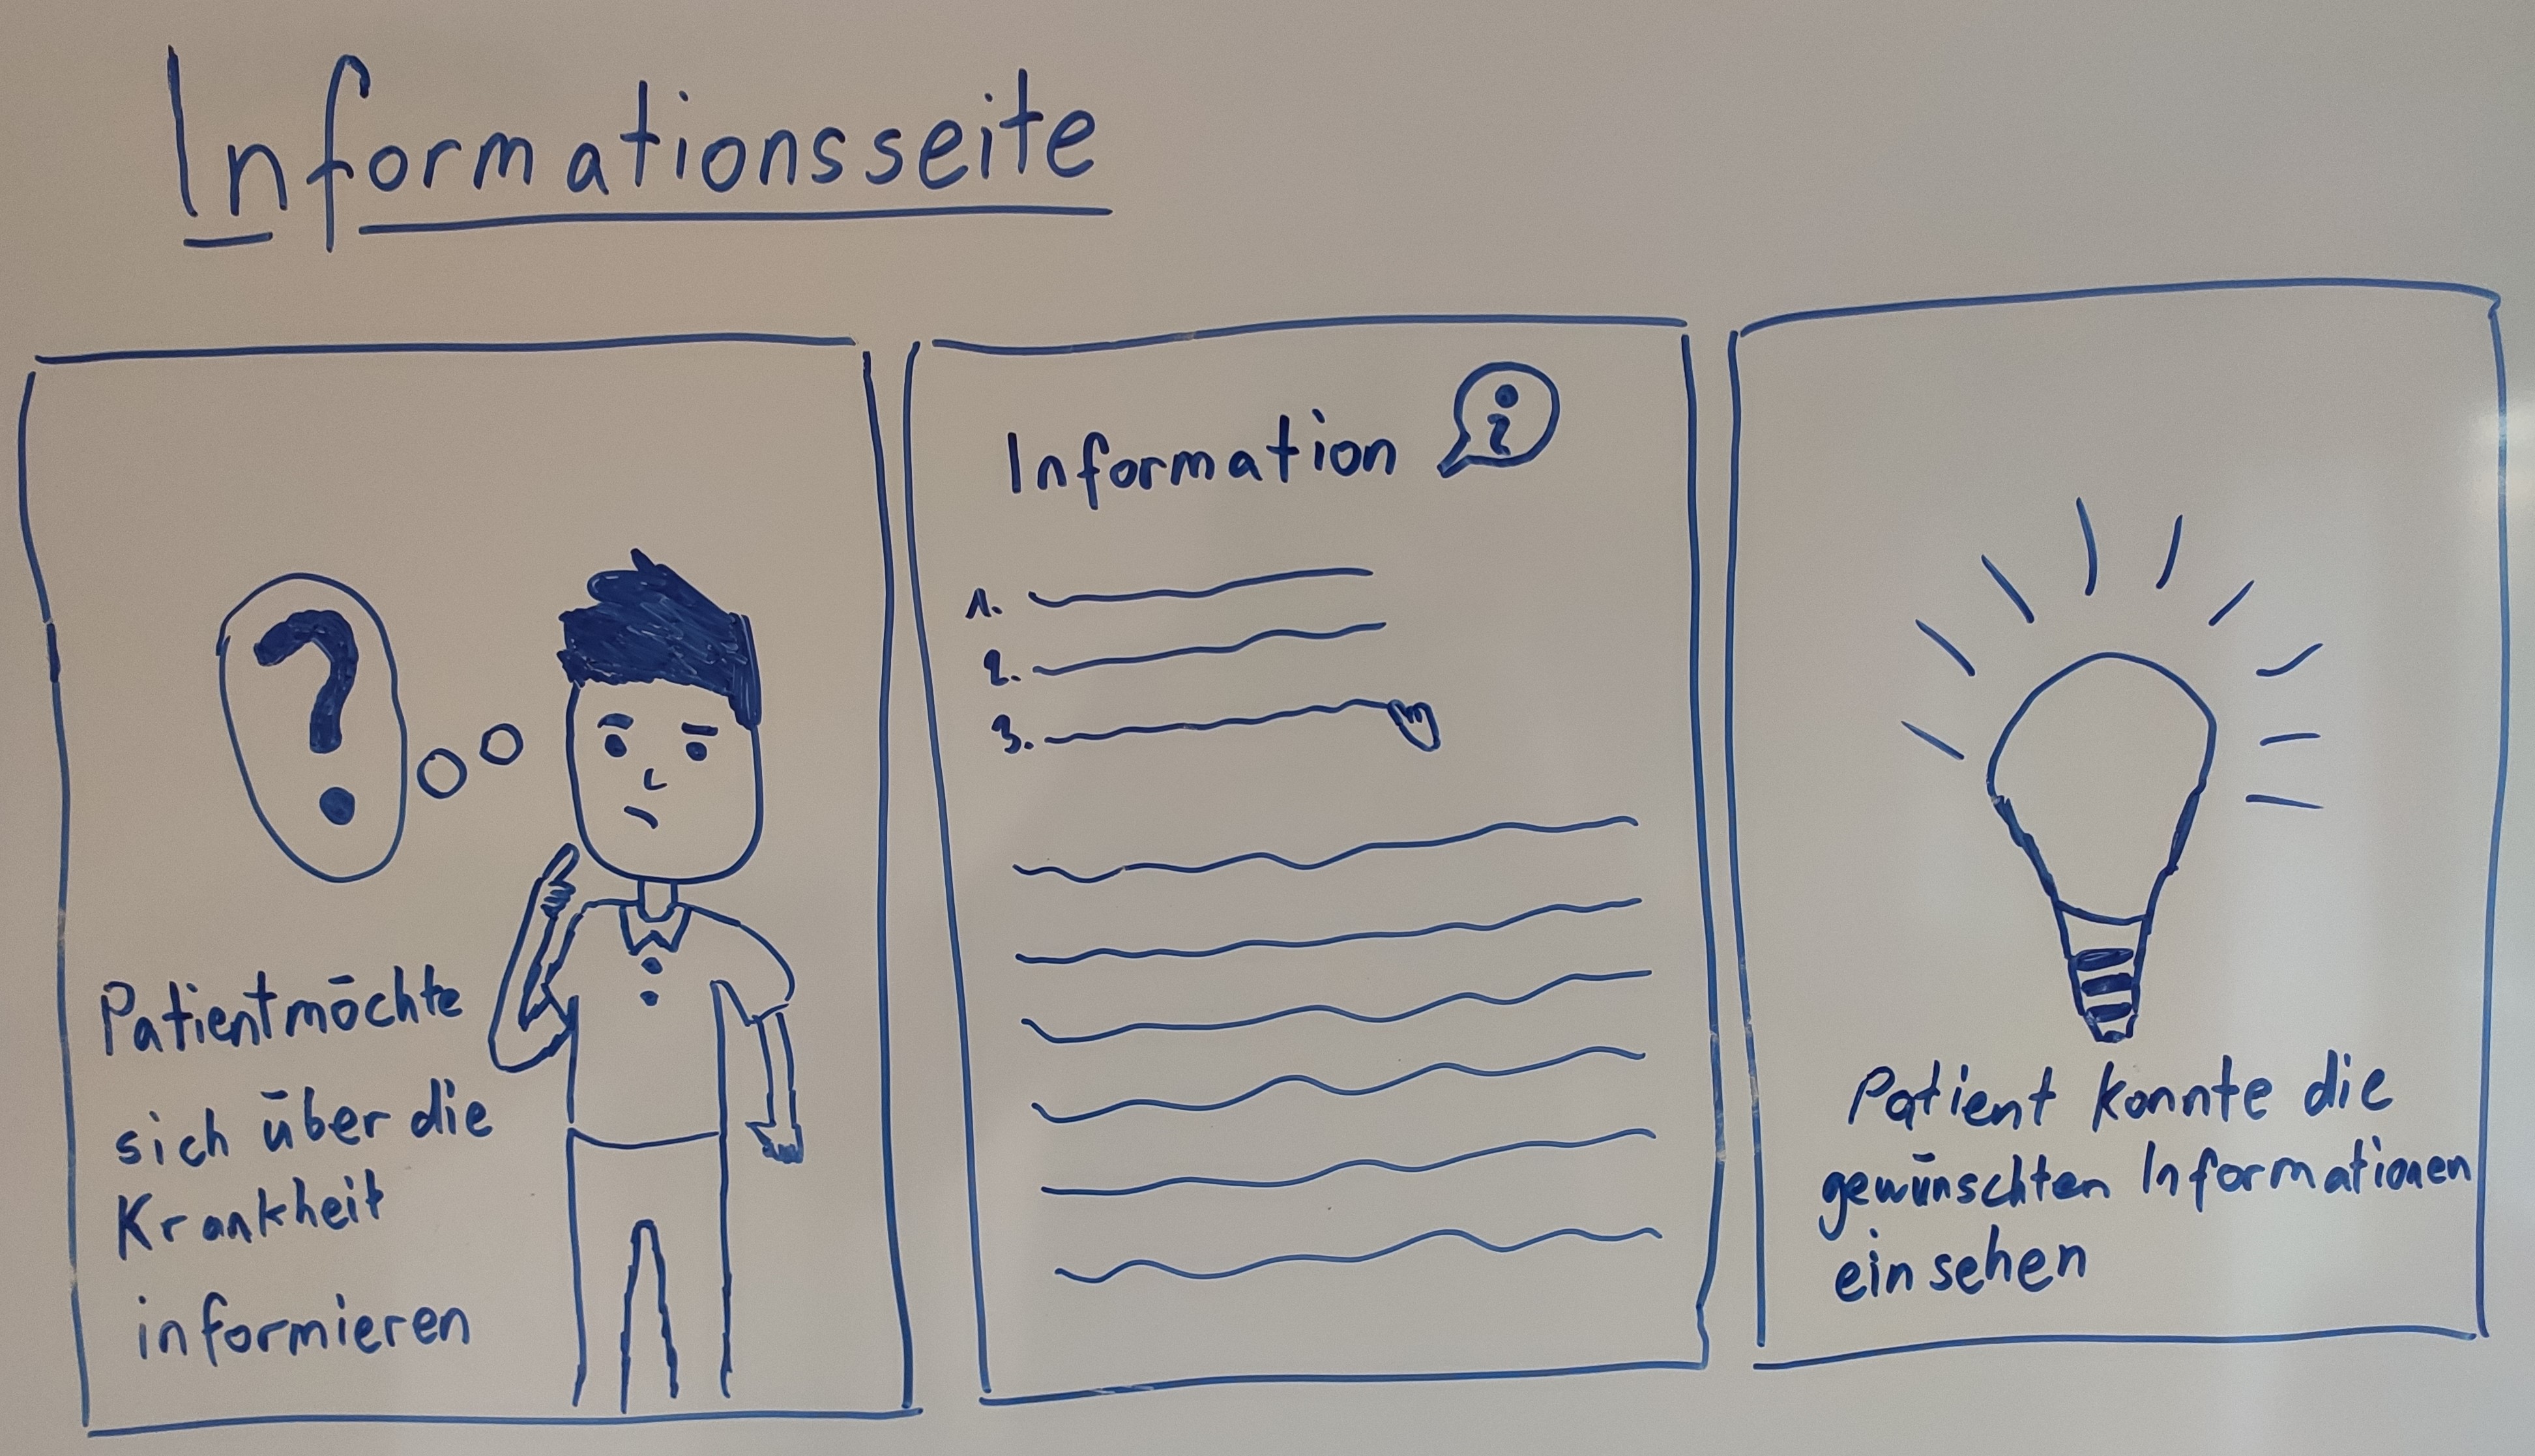 Informationsseite
Patient möchte
sich über die
Krankheit
informieren
Information i
1.
2.
3.
?
Patient konnte die
gewünschten Informationen
einsehen